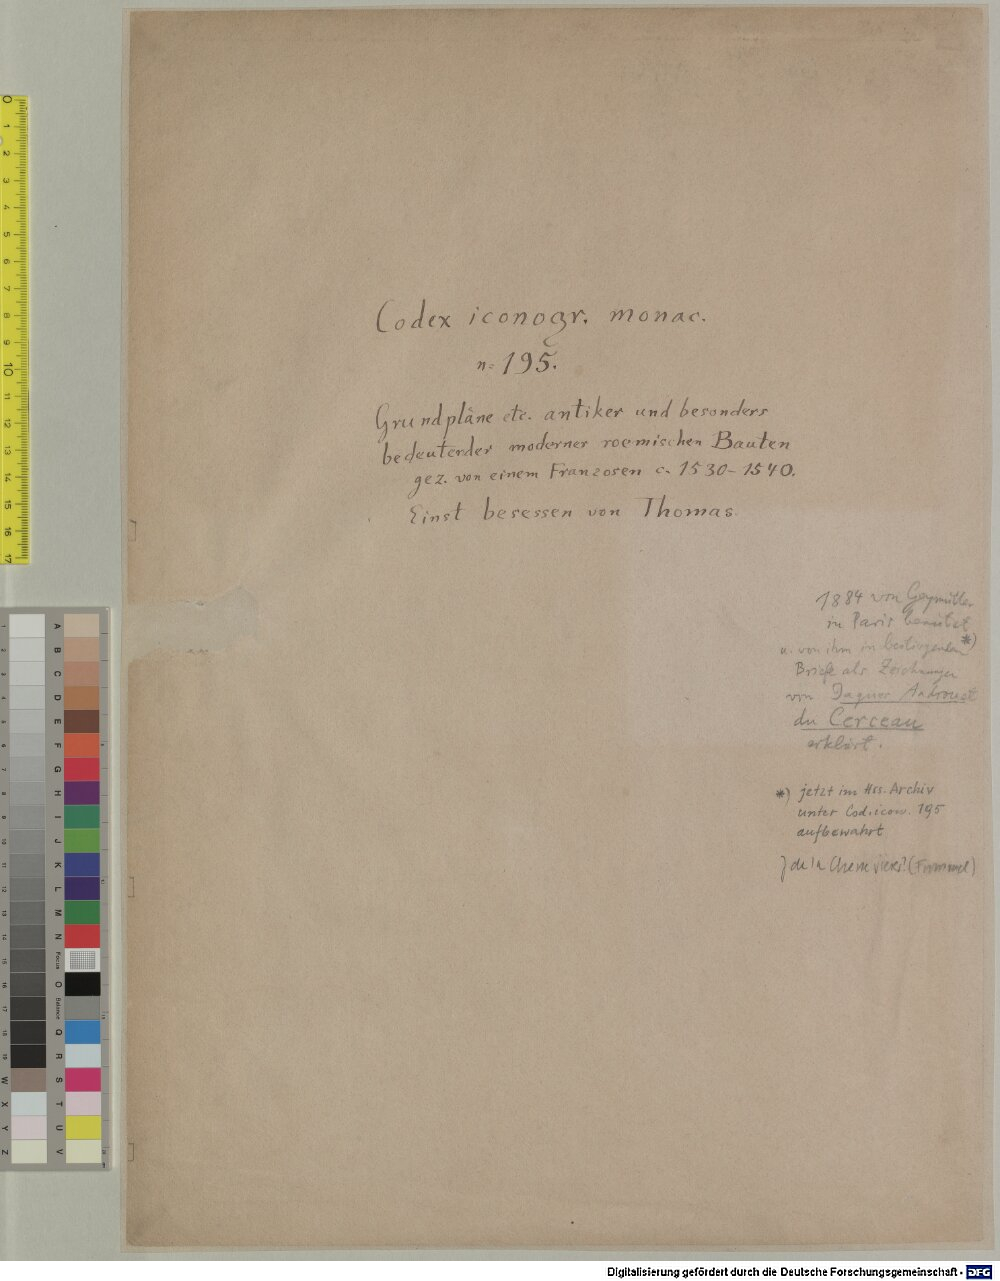 Codex iconogr. monac.
n. 195.
Grundpläne etc. antiker und besonders
bedeutender moderner roemischen Bauten
gez. von einem Franzosen c. 1530-1540.
Einst besessen von Thomas.
1884 von Geymüller
in Paris benützt
u. von ihm in beiliegendem *)
Briefe als Zeichnungen
von Jaques Androuet
du Cerceau
erklärt.
*) jetzt im Hss. Archiv
unter Cod. icon. 195
aufbewahrt
(Frommel)
Digitalisierung gefördert durch die Deutsche Forschungsgemeinschaft - DFG